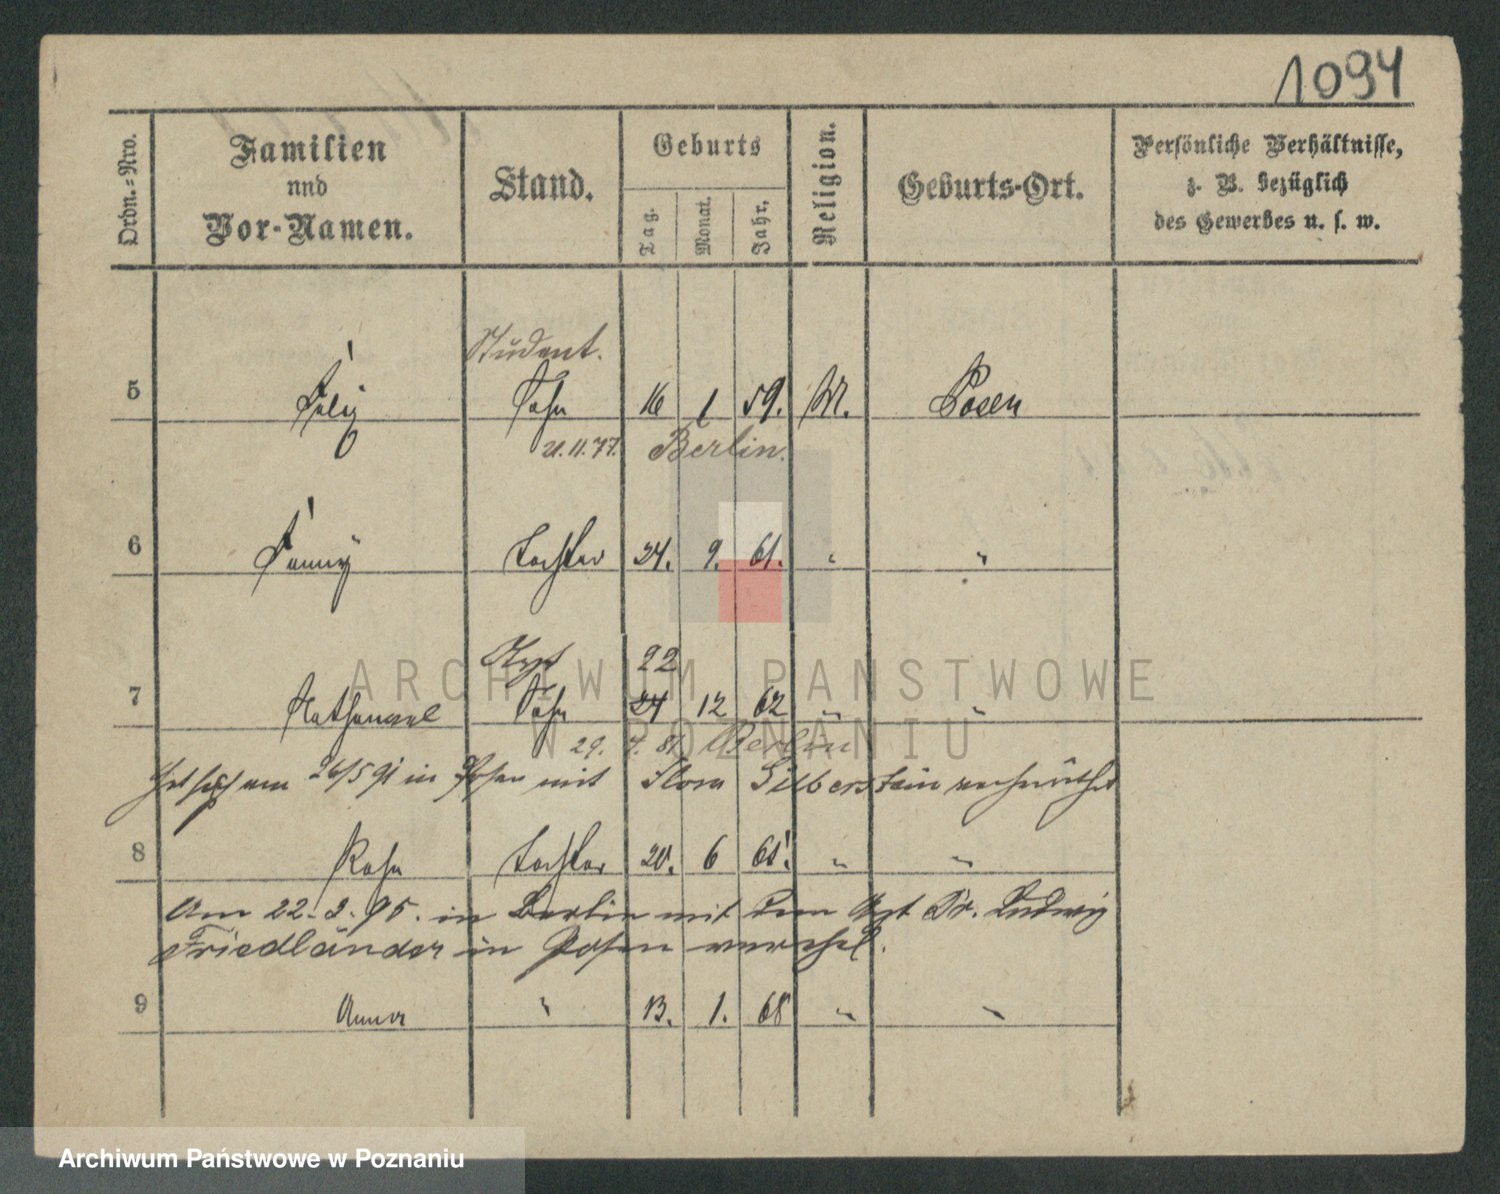 1094
Ordn.-Nro.
Familien
und
Vor-Namen.
Stand.
Geburts
Tag.
Monat.
Jahr.
Religion.
Geburts-Ort.
Persönliche Verhältnisse,
z. B. bezüglich
des Gewerbes u. s. w.
Student.
5 Felix Sohn 16 1 59. M. Posen
21.11.77. Berlin.
6 Fanny Tochter 24. 9. 61. " "
Arzt 22
7 Nathanael Sohn 24 12 62 " "
29. 7. 81 Berlin
Hat sich am 26/5 91 in Posen mit Flora Silberstein verheirathet
8 Rosa Tochter 20. 6 65. " "
Am 22. 2. 95. in Berlin mit dem Arzt Dr. Ludwig
Friedländer in Posen verehel.
9 Anna " 13. 1. 68 " "
ARCHIWUM PAŃSTWOWE
W POZNANIU
Archiwum Państwowe w Poznaniu